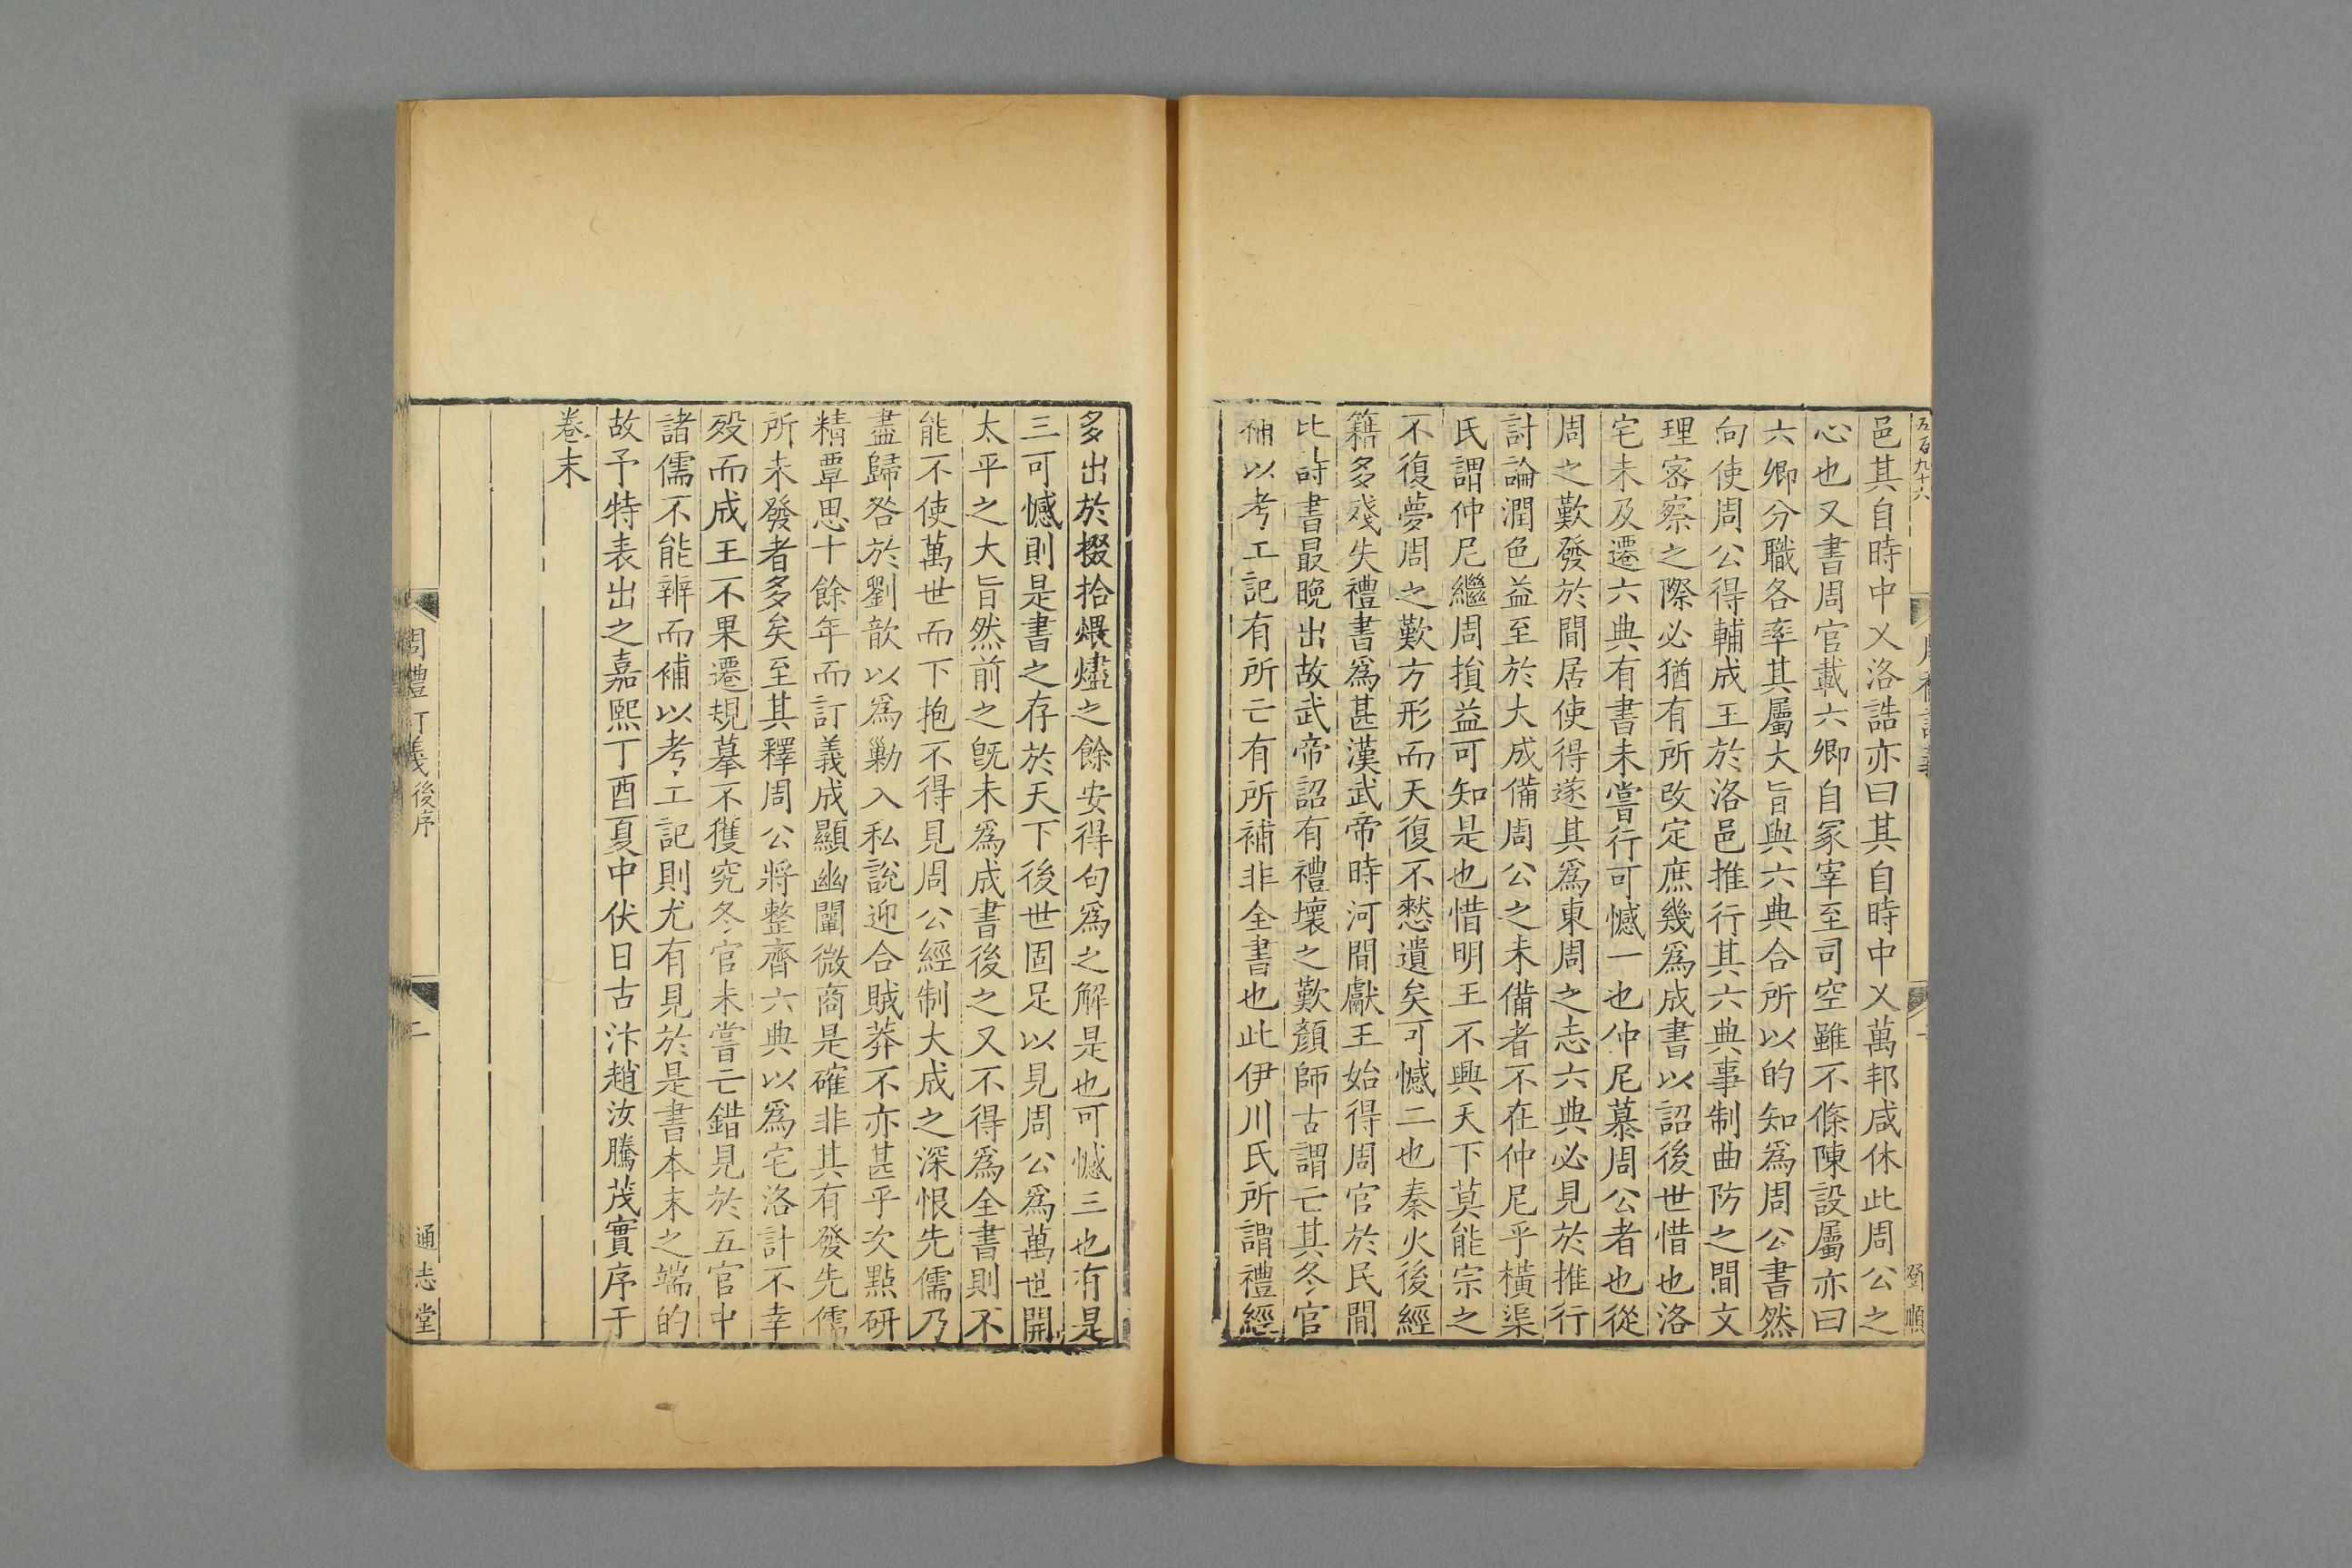 五百九十六
鄧順
邑其自時中乂洛誥亦曰其自時中乂萬邦咸休此周公之
心也又書周官載六卿自冢宰至司空雖不條陳設屬亦曰
六卿分職各率其屬大旨與六典合所以的知爲周公書然
向使周公得輔成王於洛邑推行其六典事制曲防之間文
理密察之際必猶有所改定庶幾爲成書以詔後世惜也洛
宅未及遷六典有書未嘗行可憾一也仲尼慕周公者也從
周之歎發於間居使得遂其爲東周之志六典必見於推行
討論潤色益至於大成備周公之未備者不在仲尼乎橫渠
氏謂仲尼繼周損益可知是也惜明王不興天下莫能宗之
不復夢周之歎方形而天復不憖遺矣可憾二也秦火後經
籍多殘失禮書爲甚漢武帝時河間獻王始得周官於民間
比詩書最晚出故武帝詔有禮壞之歎顏師古謂亡其冬官
補以考工記有所亡有所補非全書也此伊川氏所謂禮經
多出於掇拾煨燼之餘安得句爲之解是也可憾三也有是
三可憾則是書之存於天下後世固足以見周公爲萬世開
太平之大旨然前之旣未爲成書後之又不得爲全書則不
能不使萬世而下抱不得見周公經制大成之深恨先儒乃
盡歸咎於劉歆以爲勦入私說迎合賊莽不亦甚乎次點研
精覃思十餘年而訂義成顯幽闡微商是確非其有發先儒
所未發者多矣至其釋周公將整齊六典以爲宅洛計不幸
歿而成王不果遷規摹不獲究冬官未嘗亡錯見於五官中
諸儒不能辨而補以考工記則尤有見於是書本末之端的
故予特表出之嘉熙丁酉夏中伏日古汴趙汝騰茂實序于
卷末
周禮訂義後序
二
通志堂